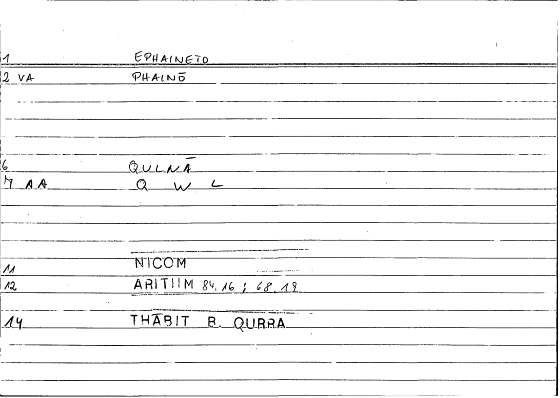 1 EPHAINETO
2 VA PHAINŌ
6 QULNĀ
7 AA Q W L
11 NICOM
12 ARITIIM 84,16 ; 68,19
14 THĀBIT B. QURRA